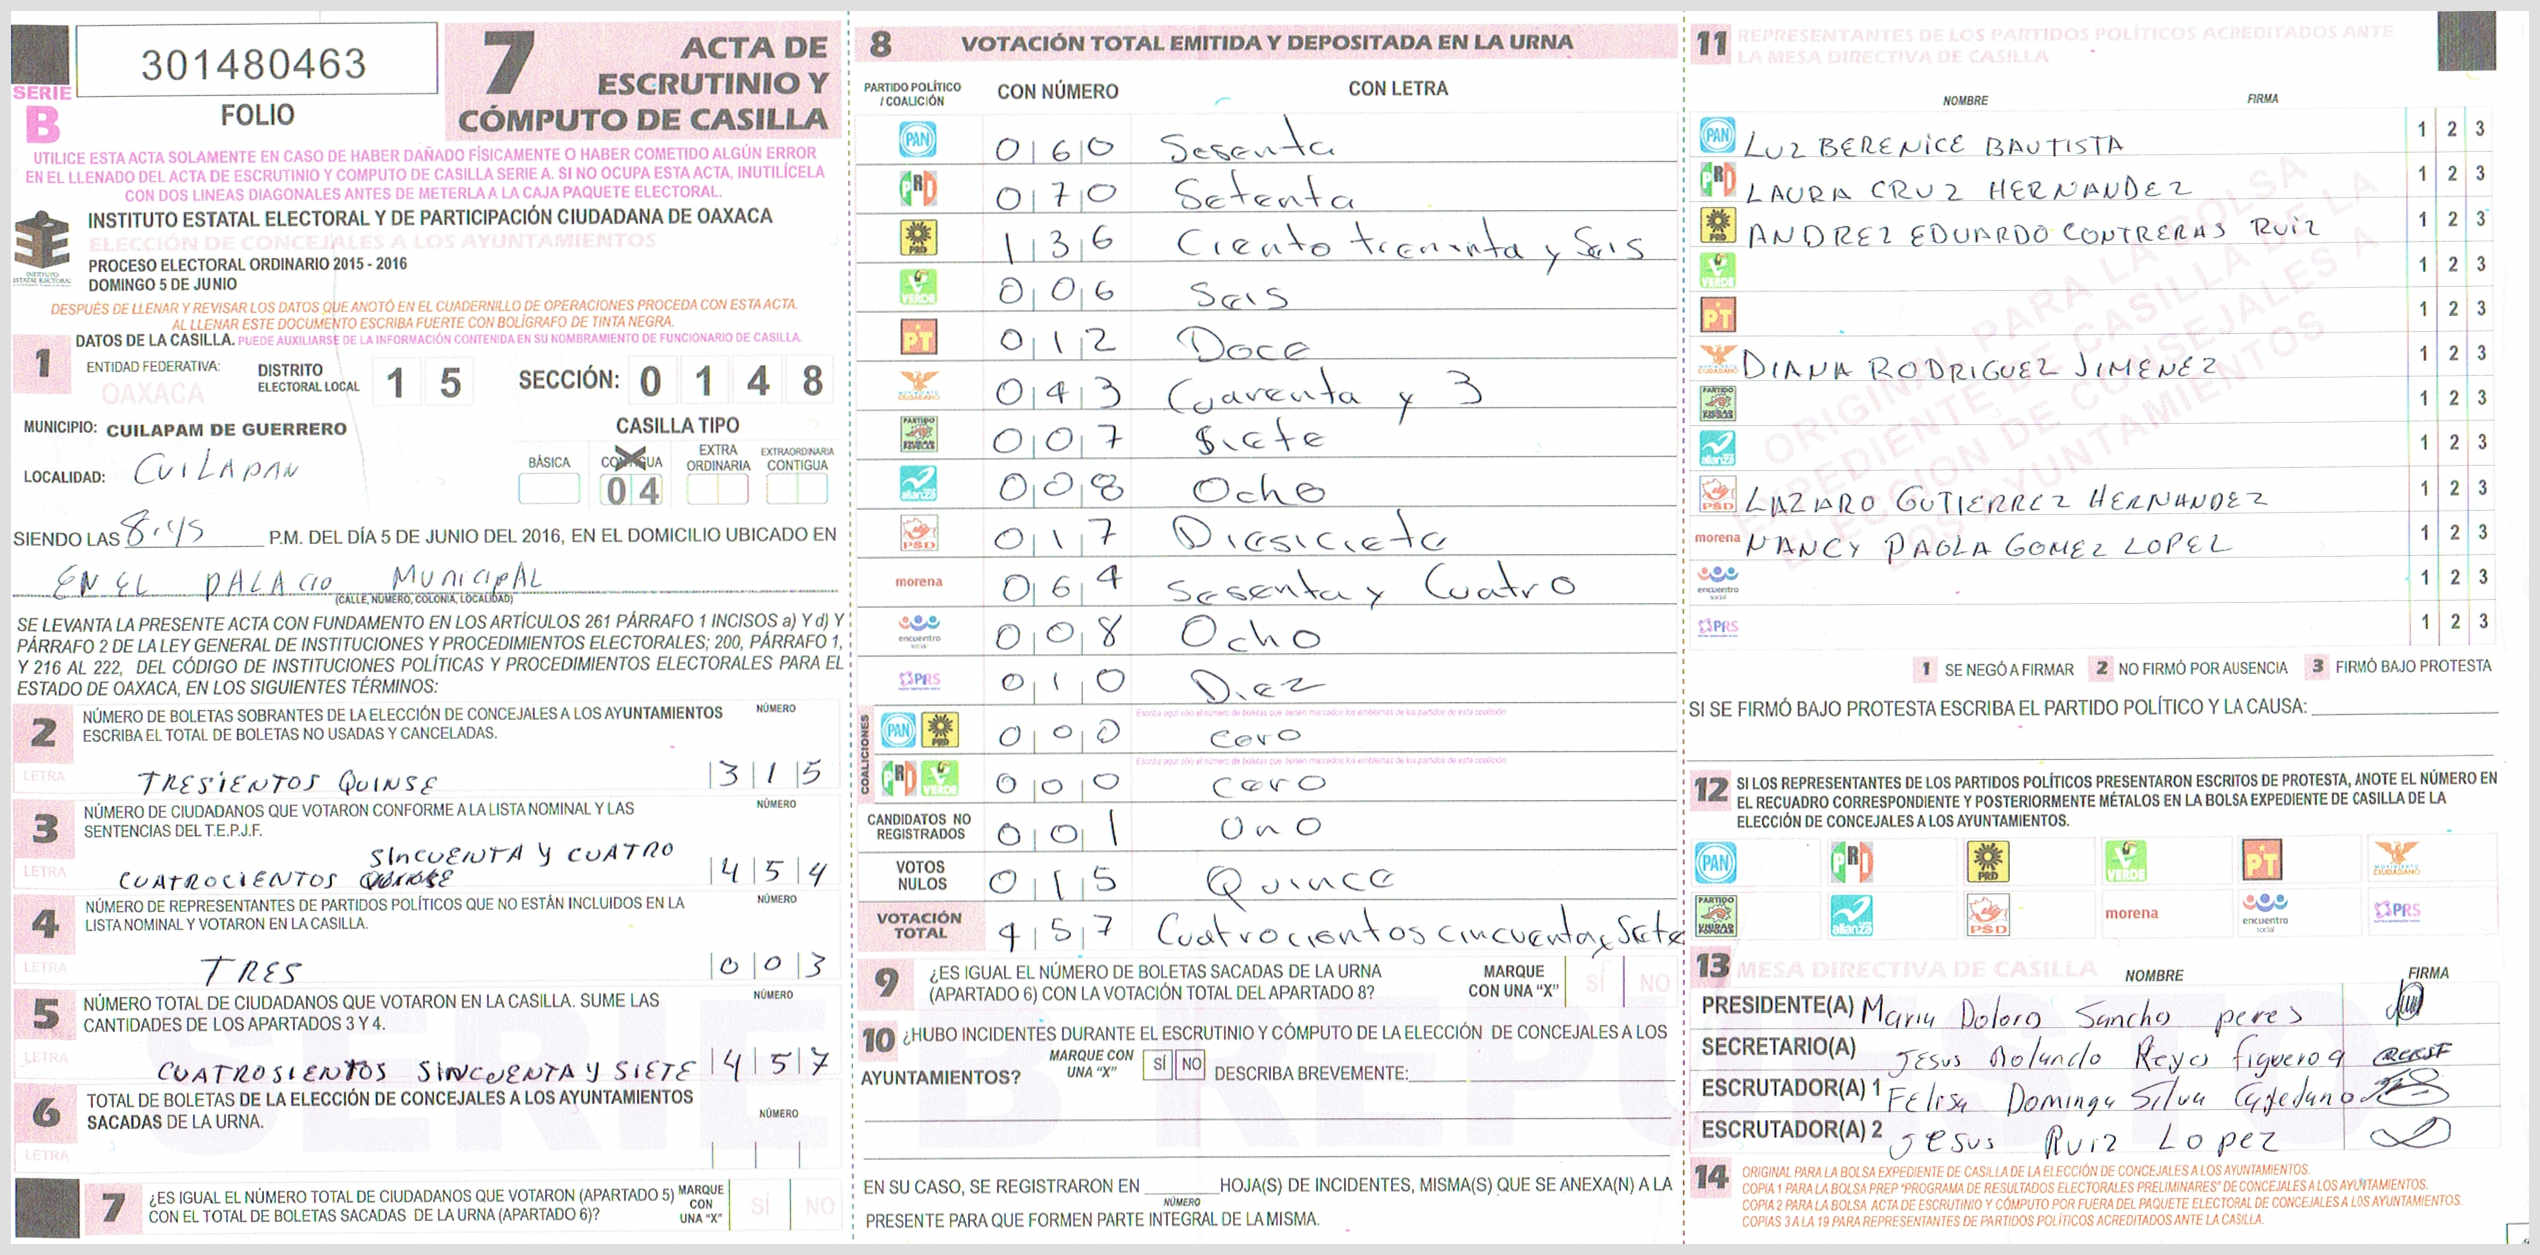 301480463
FOLIO
SERIE
B
7
ACTA DE
ESCRUTINIO Y
CÓMPUTO DE CASILLA
UTILICE ESTA ACTA SOLAMENTE EN CASO DE HABER DAÑADO FÍSICAMENTE O HABER COMETIDO ALGÚN ERROR
EN EL LLENADO DEL ACTA DE ESCRUTINIO Y COMPUTO DE CASILLA SERIE A. SI NO OCUPA ESTA ACTA, INUTILÍCELA
CON DOS LINEAS DIAGONALES ANTES DE METERLA A LA CAJA PAQUETE ELECTORAL.
INSTITUTO ESTATAL ELECTORAL Y DE PARTICIPACIÓN CIUDADANA DE OAXACA
ELECCIÓN DE CONCEJALES A LOS AYUNTAMIENTOS
PROCESO ELECTORAL ORDINARIO 2015 - 2016
DOMINGO 5 DE JUNIO
DESPUÉS DE LLENAR Y REVISAR LOS DATOS QUE ANOTÓ EN EL CUADERNILLO DE OPERACIONES PROCEDA CON ESTA ACTA.
AL LLENAR ESTE DOCUMENTO ESCRIBA FUERTE CON BOLÍGRAFO DE TINTA NEGRA.
1 DATOS DE LA CASILLA. PUEDE AUXILIARSE DE LA INFORMACIÓN CONTENIDA EN SU NOMBRAMIENTO DE FUNCIONARIO DE CASILLA.
ENTIDAD FEDERATIVA: OAXACA
DISTRITO ELECTORAL LOCAL 1 5 SECCIÓN: 0 1 4 8
MUNICIPIO: CUILAPAM DE GUERRERO
CASILLA TIPO
LOCALIDAD: CUILAPAN
BÁSICA CONTIGUA 04 EXTRA ORDINARIA EXTRAORDINARIA CONTIGUA
SIENDO LAS 8:45 P.M. DEL DÍA 5 DE JUNIO DEL 2016, EN EL DOMICILIO UBICADO EN
EN EL PALACIO MUNICIPAL
(CALLE, NÚMERO, COLONIA, LOCALIDAD)
SE LEVANTA LA PRESENTE ACTA CON FUNDAMENTO EN LOS ARTÍCULOS 261 PÁRRAFO 1 INCISOS a) Y d) Y
PÁRRAFO 2 DE LA LEY GENERAL DE INSTITUCIONES Y PROCEDIMIENTOS ELECTORALES; 200, PÁRRAFO 1,
Y 216 AL 222, DEL CÓDIGO DE INSTITUCIONES POLÍTICAS Y PROCEDIMIENTOS ELECTORALES PARA EL
ESTADO DE OAXACA, EN LOS SIGUIENTES TÉRMINOS:
2 NÚMERO DE BOLETAS SOBRANTES DE LA ELECCIÓN DE CONCEJALES A LOS AYUNTAMIENTOS NÚMERO
ESCRIBA EL TOTAL DE BOLETAS NO USADAS Y CANCELADAS.
LETRA TRESIENTOS QUINSE 3 1 5
3 NÚMERO DE CIUDADANOS QUE VOTARON CONFORME A LA LISTA NOMINAL Y LAS NÚMERO
SENTENCIAS DEL T.E.P.J.F.
SINCUENTA Y CUATRO
LETRA CUATROCIENTOS 4 5 4
4 NÚMERO DE REPRESENTANTES DE PARTIDOS POLÍTICOS QUE NO ESTÁN INCLUIDOS EN LA NÚMERO
LISTA NOMINAL Y VOTARON EN LA CASILLA.
LETRA TRES 0 0 3
5 NÚMERO TOTAL DE CIUDADANOS QUE VOTARON EN LA CASILLA. SUME LAS NÚMERO
CANTIDADES DE LOS APARTADOS 3 Y 4.
LETRA CUATROSIENTOS SINCUENTA Y SIETE 4 5 7
6 TOTAL DE BOLETAS DE LA ELECCIÓN DE CONCEJALES A LOS AYUNTAMIENTOS NÚMERO
SACADAS DE LA URNA.
LETRA
7 ¿ES IGUAL EL NÚMERO TOTAL DE CIUDADANOS QUE VOTARON (APARTADO 5) MARQUE CON UNA "X" SÍ NO
CON EL TOTAL DE BOLETAS SACADAS DE LA URNA (APARTADO 6)?
8 VOTACIÓN TOTAL EMITIDA Y DEPOSITADA EN LA URNA
PARTIDO POLÍTICO / COALICIÓN CON NÚMERO CON LETRA
PAN 0 6 0 Sesenta
PRI 0 7 0 Setenta
PRD 1 3 6 Ciento treninta y Seis
VERDE 0 0 6 Seis
PT 0 1 2 Doce
MOVIMIENTO CIUDADANO 0 4 3 Cuarenta y 3
PARTIDO UNIDAD POPULAR 0 0 7 Siete
alianza 0 0 8 Ocho
PSD 0 1 7 Diesiciete
morena 0 6 4 Sesenta y Cuatro
encuentro social 0 0 8 Ocho
PRS 0 1 0 Diez
COALICIONES
Escriba aquí sólo el número de boletas que tienen marcados los emblemas de los partidos de esta coalición
PAN PRD 0 0 0 Cero
Escriba aquí sólo el número de boletas que tienen marcados los emblemas de los partidos de esta coalición
PRI VERDE 0 0 0 Cero
CANDIDATOS NO REGISTRADOS 0 0 1 Uno
VOTOS NULOS 0 1 5 Quince
VOTACIÓN TOTAL 4 5 7 Cuatrocientos cincuenta y Siete
9 ¿ES IGUAL EL NÚMERO DE BOLETAS SACADAS DE LA URNA MARQUE CON UNA "X" SÍ NO
(APARTADO 6) CON LA VOTACIÓN TOTAL DEL APARTADO 8?
10 ¿HUBO INCIDENTES DURANTE EL ESCRUTINIO Y CÓMPUTO DE LA ELECCIÓN DE CONCEJALES A LOS
AYUNTAMIENTOS? MARQUE CON UNA "X" SÍ NO DESCRIBA BREVEMENTE:
EN SU CASO, SE REGISTRARON EN HOJA(S) DE INCIDENTES, MISMA(S) QUE SE ANEXA(N) A LA
NÚMERO
PRESENTE PARA QUE FORMEN PARTE INTEGRAL DE LA MISMA.
11 REPRESENTANTES DE LOS PARTIDOS POLÍTICOS ACREDITADOS ANTE
LA MESA DIRECTIVA DE CASILLA
NOMBRE FIRMA
PAN LUZ BERENICE BAUTISTA 1 2 3
PRI LAURA CRUZ HERNANDEZ 1 2 3
PRD ANDREZ EDUARDO CONTRERAS RUIZ 1 2 3
VERDE 1 2 3
PT 1 2 3
MOVIMIENTO CIUDADANO DIANA RODRIGUEZ JIMENEZ 1 2 3
PARTIDO UNIDAD POPULAR 1 2 3
alianza 1 2 3
PSD LAZARO GUTIERREZ HERNANDEZ 1 2 3
morena NANCY PAOLA GOMEZ LOPEZ 1 2 3
encuentro social 1 2 3
PRS 1 2 3
ORIGINAL PARA LA BOLSA
EXPEDIENTE DE CASILLA DE LA
ELECCIÓN DE CONSEJALES A
LOS AYUNTAMIENTOS
1 SE NEGÓ A FIRMAR 2 NO FIRMÓ POR AUSENCIA 3 FIRMÓ BAJO PROTESTA
SI SE FIRMÓ BAJO PROTESTA ESCRIBA EL PARTIDO POLÍTICO Y LA CAUSA:
12 SI LOS REPRESENTANTES DE LOS PARTIDOS POLÍTICOS PRESENTARON ESCRITOS DE PROTESTA, ANOTE EL NÚMERO EN
EL RECUADRO CORRESPONDIENTE Y POSTERIORMENTE MÉTALOS EN LA BOLSA EXPEDIENTE DE CASILLA DE LA
ELECCIÓN DE CONCEJALES A LOS AYUNTAMIENTOS.
PAN PRI PRD VERDE PT MOVIMIENTO CIUDADANO
PARTIDO UNIDAD POPULAR alianza PSD morena encuentro social PRS
13 MESA DIRECTIVA DE CASILLA NOMBRE FIRMA
PRESIDENTE(A) Maria Doloro Sancho peres
SECRETARIO(A) Jesus Rolando Reyes figueroa
ESCRUTADOR(A) 1 Felisa Dominga Silva Cayetano
ESCRUTADOR(A) 2 Jesus Ruiz Lopez
SERIE B REPUESTO
14 ORIGINAL PARA LA BOLSA EXPEDIENTE DE CASILLA DE LA ELECCIÓN DE CONCEJALES A LOS AYUNTAMIENTOS.
COPIA 1 PARA LA BOLSA PREP "PROGRAMA DE RESULTADOS ELECTORALES PRELIMINARES" DE CONCEJALES A LOS AYUNTAMIENTOS.
COPIA 2 PARA LA BOLSA ACTA DE ESCRUTINIO Y CÓMPUTO POR FUERA DEL PAQUETE ELECTORAL DE CONCEJALES A LOS AYUNTAMIENTOS.
COPIAS 3 A LA 19 PARA REPRESENTANTES DE PARTIDOS POLÍTICOS ACREDITADOS ANTE LA CASILLA.